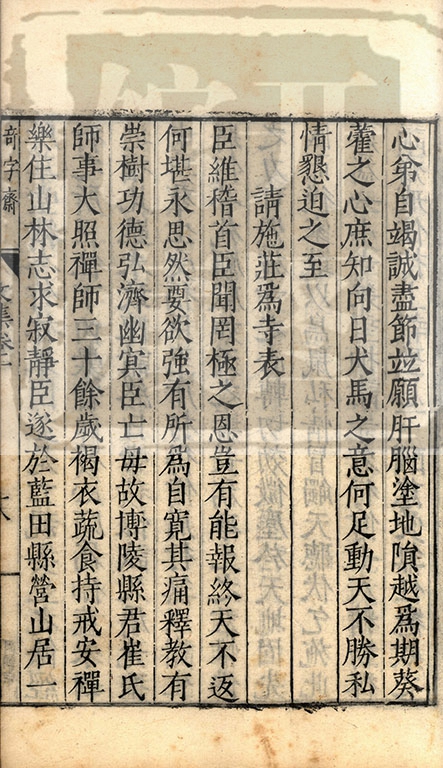 心弟自竭誠盡節竝願肝腦塗地隕越爲期葵
藿之心庶知向日犬馬之意何足動天不勝私
情懇迫之至
請施莊爲寺表
臣維稽首臣聞罔極之恩豈有能報終天不返
何堪永思然要欲強有所爲自寬其痛釋教有
崇樹功德弘濟幽冥臣亡母故博陵縣君崔氏
師事大照禪師三十餘歲褐衣蔬食持戒安禪
樂住山林志求寂靜臣遂於藍田縣營山居一
奇字齋
文集卷二